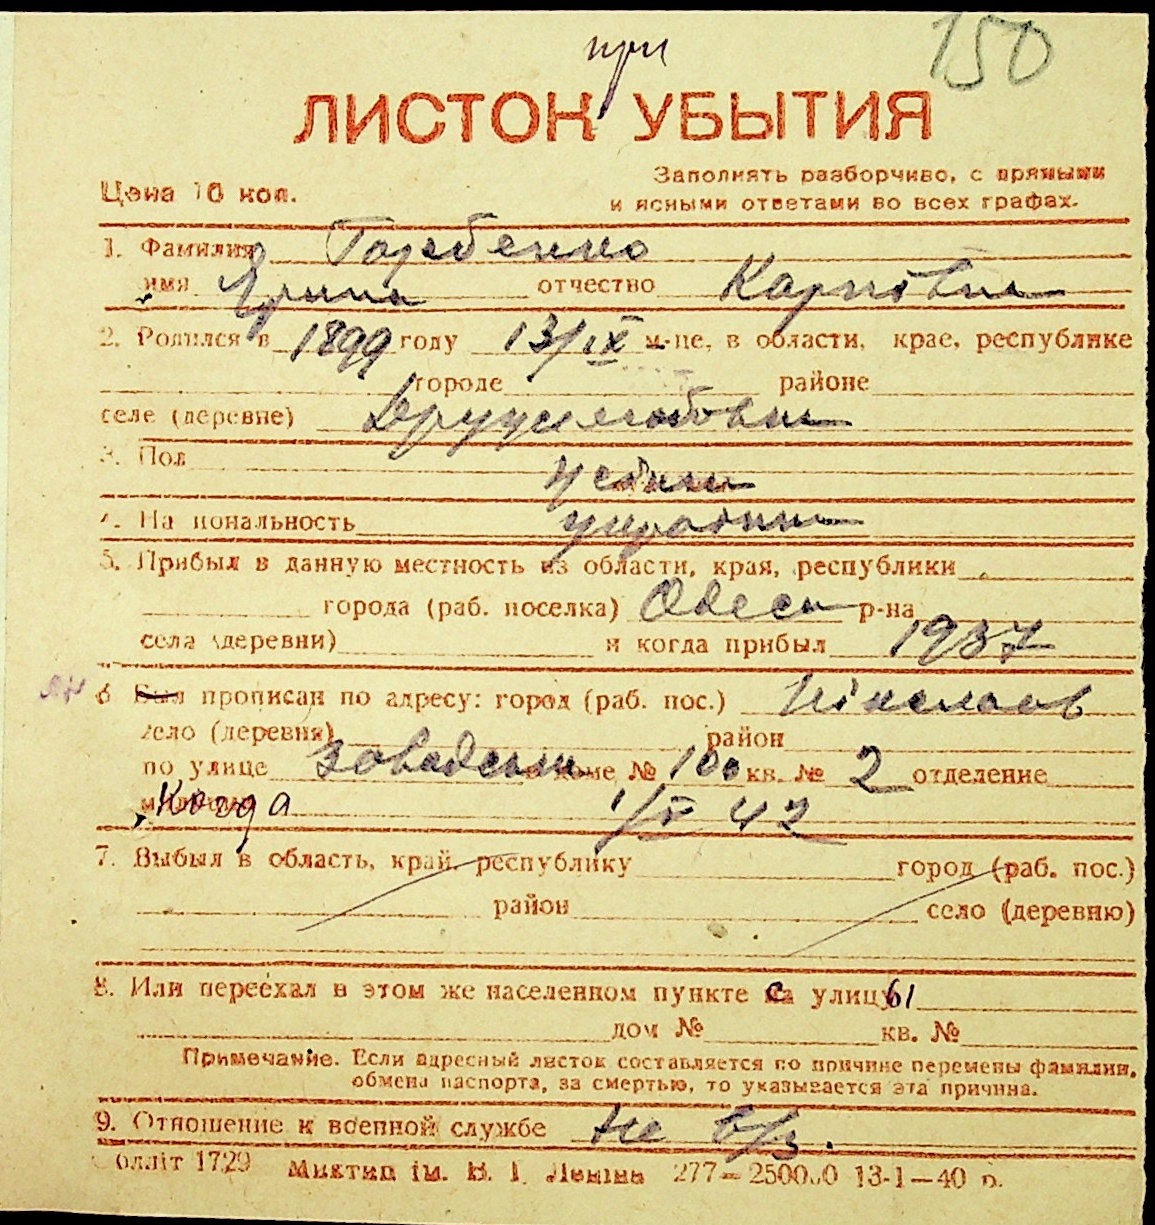 150
при
ЛИСТОК УБЫТИЯ
Цена 10 коп.
Заполнять разборчиво, с прямыми
и ясными ответами во всех графах.
1. Фамилия Горбенко
имя отчество Карповн
2. Родился в 1899 году 13/IX м-це, в области, крае, республике
городе районе
селе (деревне)
3. Пол
4. Национальность
5. Прибыл в данную местность из области, края, республики
города (раб. поселка) Одеси р-на
села (деревни) и когда прибыл 1937
6 Был прописан по адресу: город (раб. пос.) Ніколаев
село (деревня) район
по улице заводскі в доме № 100 кв. № 2 отделение
Когда 1/V 42
7. Выбыл в область, край, республику город (раб. пос.)
район село (деревню)
8. Или переехал в этом же населенном пункте с улицы
дом № кв. №
Примечание. Если адресный листок составляется по причине перемены фамилии,
обмена паспорта, за смертью, то указывается эта причина.
9. Отношение к военной службе не в/з.
олліт 1729 Миктип ім. В. І. Леніна 277—250000 13-1—40 р.